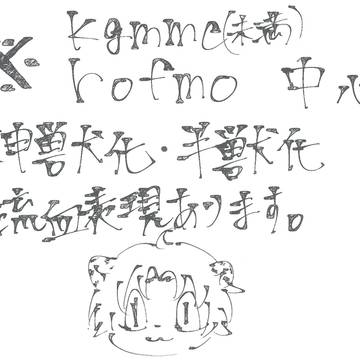 ※ kgmmc(未満)
rofmo 中心
神獣犬化・半獣犬化
流血表現あります。